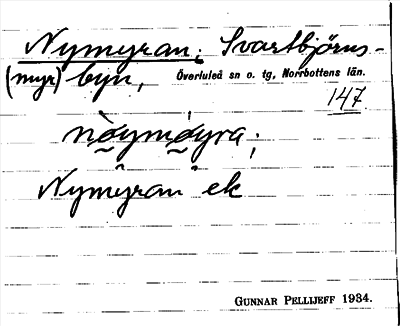 Nymyran; Svartbjörns-
(myr) byn, Överluleå sn o. tg, Norrbottens län.
147
nøymøyra;
Nymyran ek
GUNNAR PELLIJEFF 1934.